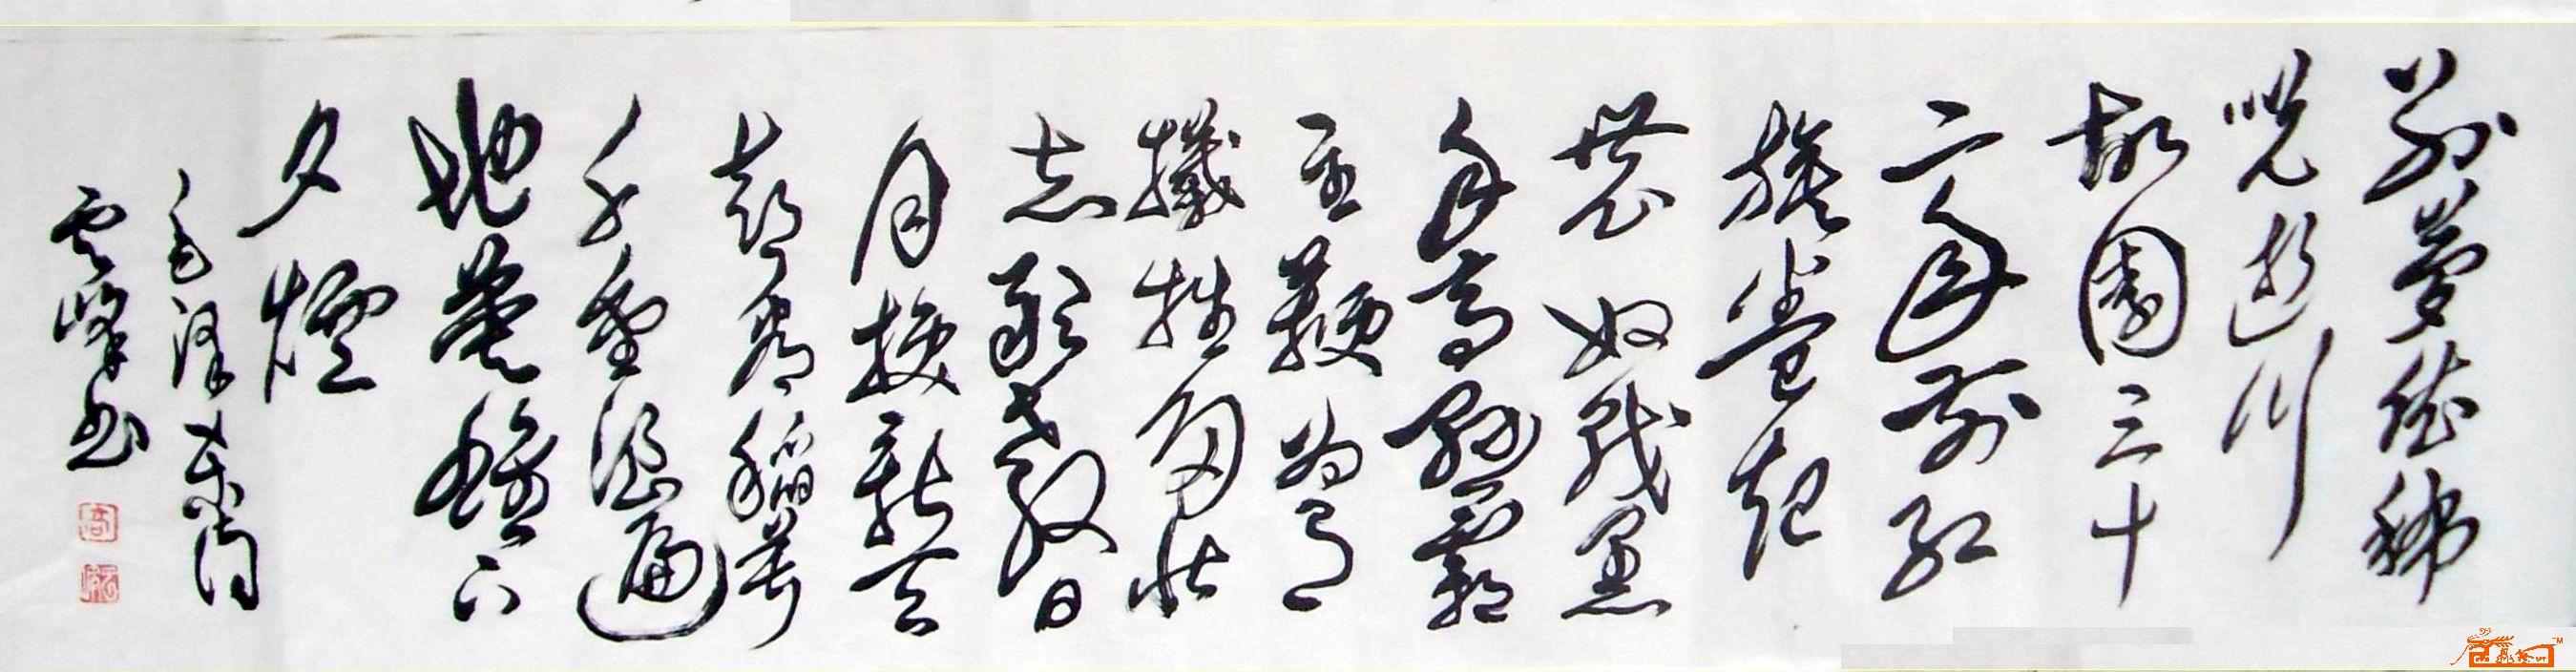 別夢依稀
咒逝川
故園三十
二年前紅
旗卷起
農奴戟黑
手高懸霸
主鞭為有
犧牲多壯
志敢教日
月換新天
喜看稻菽
千重浪遍
地英雄下
夕煙
毛澤東詞
雲峰書